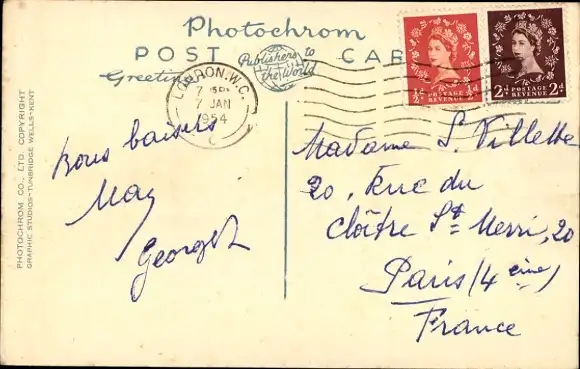 Photochrom
POST CARD
Publishers to
the World
Greetings
LONDON. W.C.
7 PM
7 JAN
1954
C
½d POSTAGE REVENUE ½d
2d POSTAGE REVENUE 2d
PHOTOCHROM CO., LTD. COPYRIGHT
GRAPHIC STUDIOS-TUNBRIDGE WELLS-KENT
Bons baisers
May
Madame S. Villette
20, Rue du
Cloître St Merri, 20
Paris (4 ème)
France